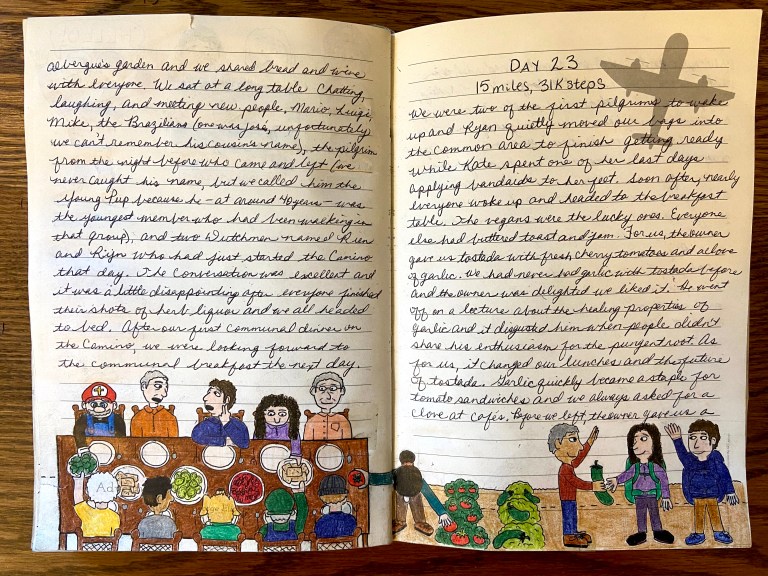 albergue's garden and we shared bread and wine
with everyone. We sat at a long table chatting,
laughing, and meeting new people, Mario, Luigi,
Mike, the Brazilians (one was José, unfortunately
we can't remember his cousin's name), the pilgrim
from the night before who came and left (we
never caught his name, but we called him the
Young Pup because he - at around 40 years - was
the youngest member who had been walking in
that group), and two Dutchmen named Rien
and Rijn who had just started the Camino
that day. The conversation was excellent and
it was a little disappointing after everyone finished
their shots of herb liquor and we all headed
to bed. After our first communal dinner on
the Camino, we were looking forward to
the communal breakfast the next day.
DAY 23
15 miles, 31K steps
We were two of the first pilgrims to wake
up and Ryan quietly moved our bags into
the common area to finish getting ready
while Kate spent one of her last days
applying bandaids to her feet. Soon after, nearly
everyone woke up and headed to the breakfast
table. The vegans were the lucky ones. Everyone
else had buttered toast and jam. For us, the owner
gave us tostada with fresh cherry tomatoes and a clove
of garlic. We had never had garlic with tostada before
and the owner was delighted we liked it. He went
off on a lecture about the healing properties of
garlic and it disgusted him when people didn't
share his enthusiasm for the pungent root. As
for us, it changed our lunches and the future
of tostada. Garlic quickly became a staple for
tomato sandwiches and we always asked for a
clove at cafés. Before we left, the owner gave us a